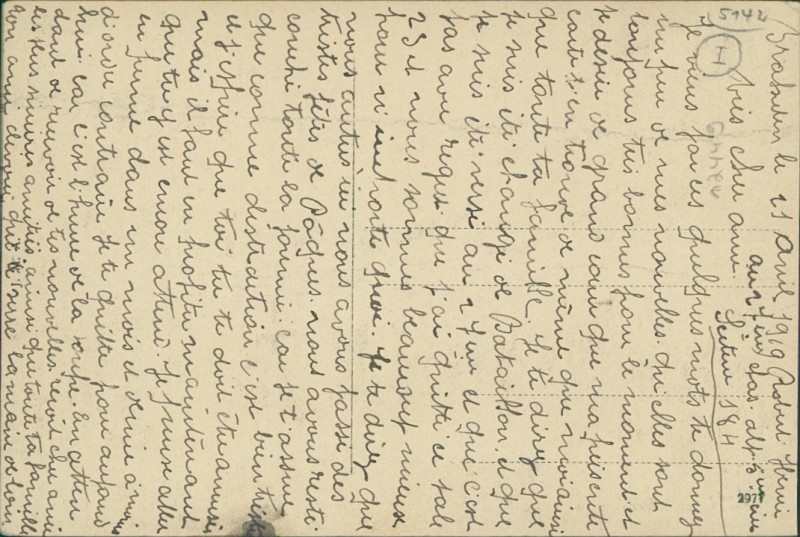 5142
I
Brabulin le 21 Avril 1919 Robert Henri
au 27ème Chas. alp. 5ème Cie
Secteur 184
Très cher ami
Je viens par ces quelques mots te donner
un peu de mes nouvelles. Qu'elles sont
toujours très bonnes pour le moment et
je désire de grand cœur que ma présente
carte t'en trouve de même que moi ainsi
que toute ta famille. Je te direz que
je suis été changé de Bataillon et que
je suis été versé au 27ème et que c'est
pas avec regret que j'ai quitté ce sale
23 et nous sommes beaucoup mieux
pour n'importe quoi. Je te direz que
nous autres ici nous avons passé des
tristes fêtes de Pâques. nous avons resté
couché toute la journée car je t'assure
que comme distraction c'est bien triste
et j'espère que toi tu te doit être amusé
mais il faut en profiter maintenant
que tu y est encore attend. Je pense aller
en perme dans un mois et demie à moins
d'ordre contraire. Je te quitte pour aujourd
hui car c'est l'heure de la soupe. En atten
dant de recevoir de tes nouvelles reçoit cher ami
les plus sincères amitiés ainsi que toute ta famille
ton ami dévoué qui te serre la main de loin
2977